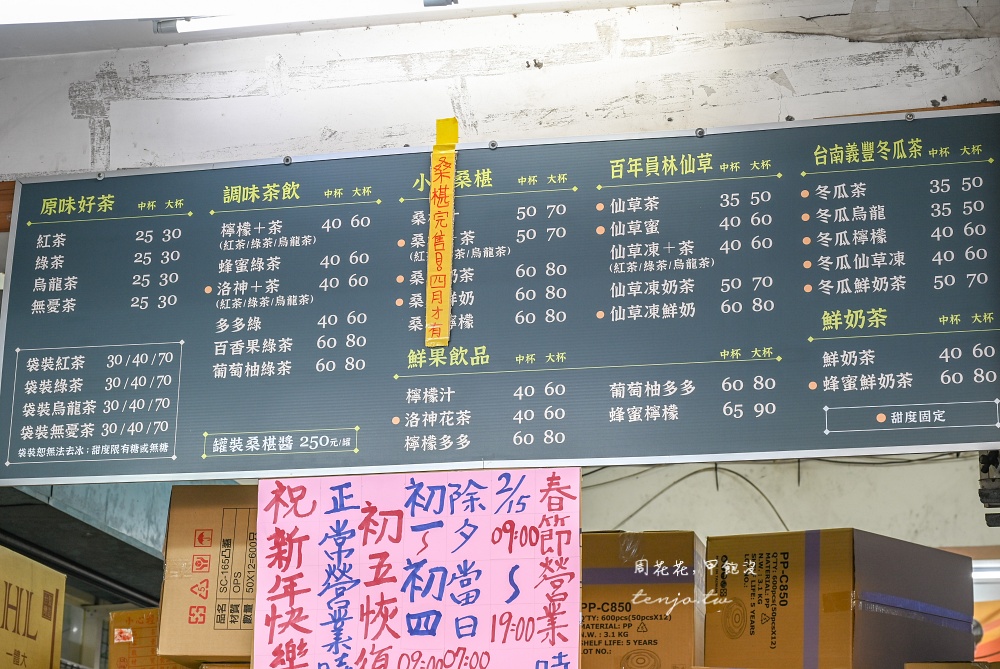 原味好茶 中杯 大杯
紅茶 25 30
綠茶 25 30
烏龍茶 25 30
無憂茶 25 30
袋裝紅茶 30/40/70
袋裝綠茶 30/40/70
袋裝烏龍茶 30/40/70
袋裝無憂茶 30/40/70
袋裝恕無法去冰;甜度限有糖或無糖
調味茶飲 中杯 大杯
檸檬+茶 40 60
(紅茶/綠茶/烏龍茶)
蜂蜜綠茶 40 60
洛神+茶 40 60
(紅茶/綠茶/烏龍茶)
多多綠 40 60
百香果綠茶 60 80
葡萄柚綠茶 60 80
罐裝桑椹醬 250元/罐
小 桑椹 中杯 大杯
桑 50 70
桑 茶 50 70
(紅 烏龍茶)
桑 奶茶 60 80
桑 鮮奶 60 80
桑 檸檬 60 80
桑椹完售!四月才有
鮮果飲品 中杯 大杯
檸檬汁 40 60
洛神花茶 40 60
檸檬多多 60 80
中杯 大杯
葡萄柚多多 60 80
蜂蜜檸檬 65 90
百年員林仙草 中杯 大杯
仙草茶 35 50
仙草蜜 40 60
仙草凍+茶 40 60
(紅茶/綠茶/烏龍茶)
仙草凍奶茶 50 70
仙草凍鮮奶 60 80
台南義豐冬瓜茶 中杯 大杯
冬瓜茶 35 50
冬瓜烏龍 35 50
冬瓜檸檬 40 60
冬瓜仙草凍 40 60
冬瓜鮮奶茶 50 70
鮮奶茶 中杯 大杯
鮮奶茶 40 60
蜂蜜鮮奶茶 60 80
甜度固定
春節營業時
2/15 09:00~19:00
除夕當日 07:00
初一~初四 09:00
初五恢復
正常營業時
祝新年快樂
品名 SC-165凸蓋
材質 OPS
50X12=600只
PP-C850
Q'TY: 600pcs(50pcsX12)
MATERIAL: PP
N.W.: 3.1 KG
SHELF LIFE: 5 YEARS
LOT NO.:
PP-C850
Q'TY: 600pcs(50pcsX12)
MATERIAL: PP
N.W.: 3.1 KG
SHELF LIFE: 5 YEARS
LOT NO.:
周花花,甲飽沒
tenjo.tw